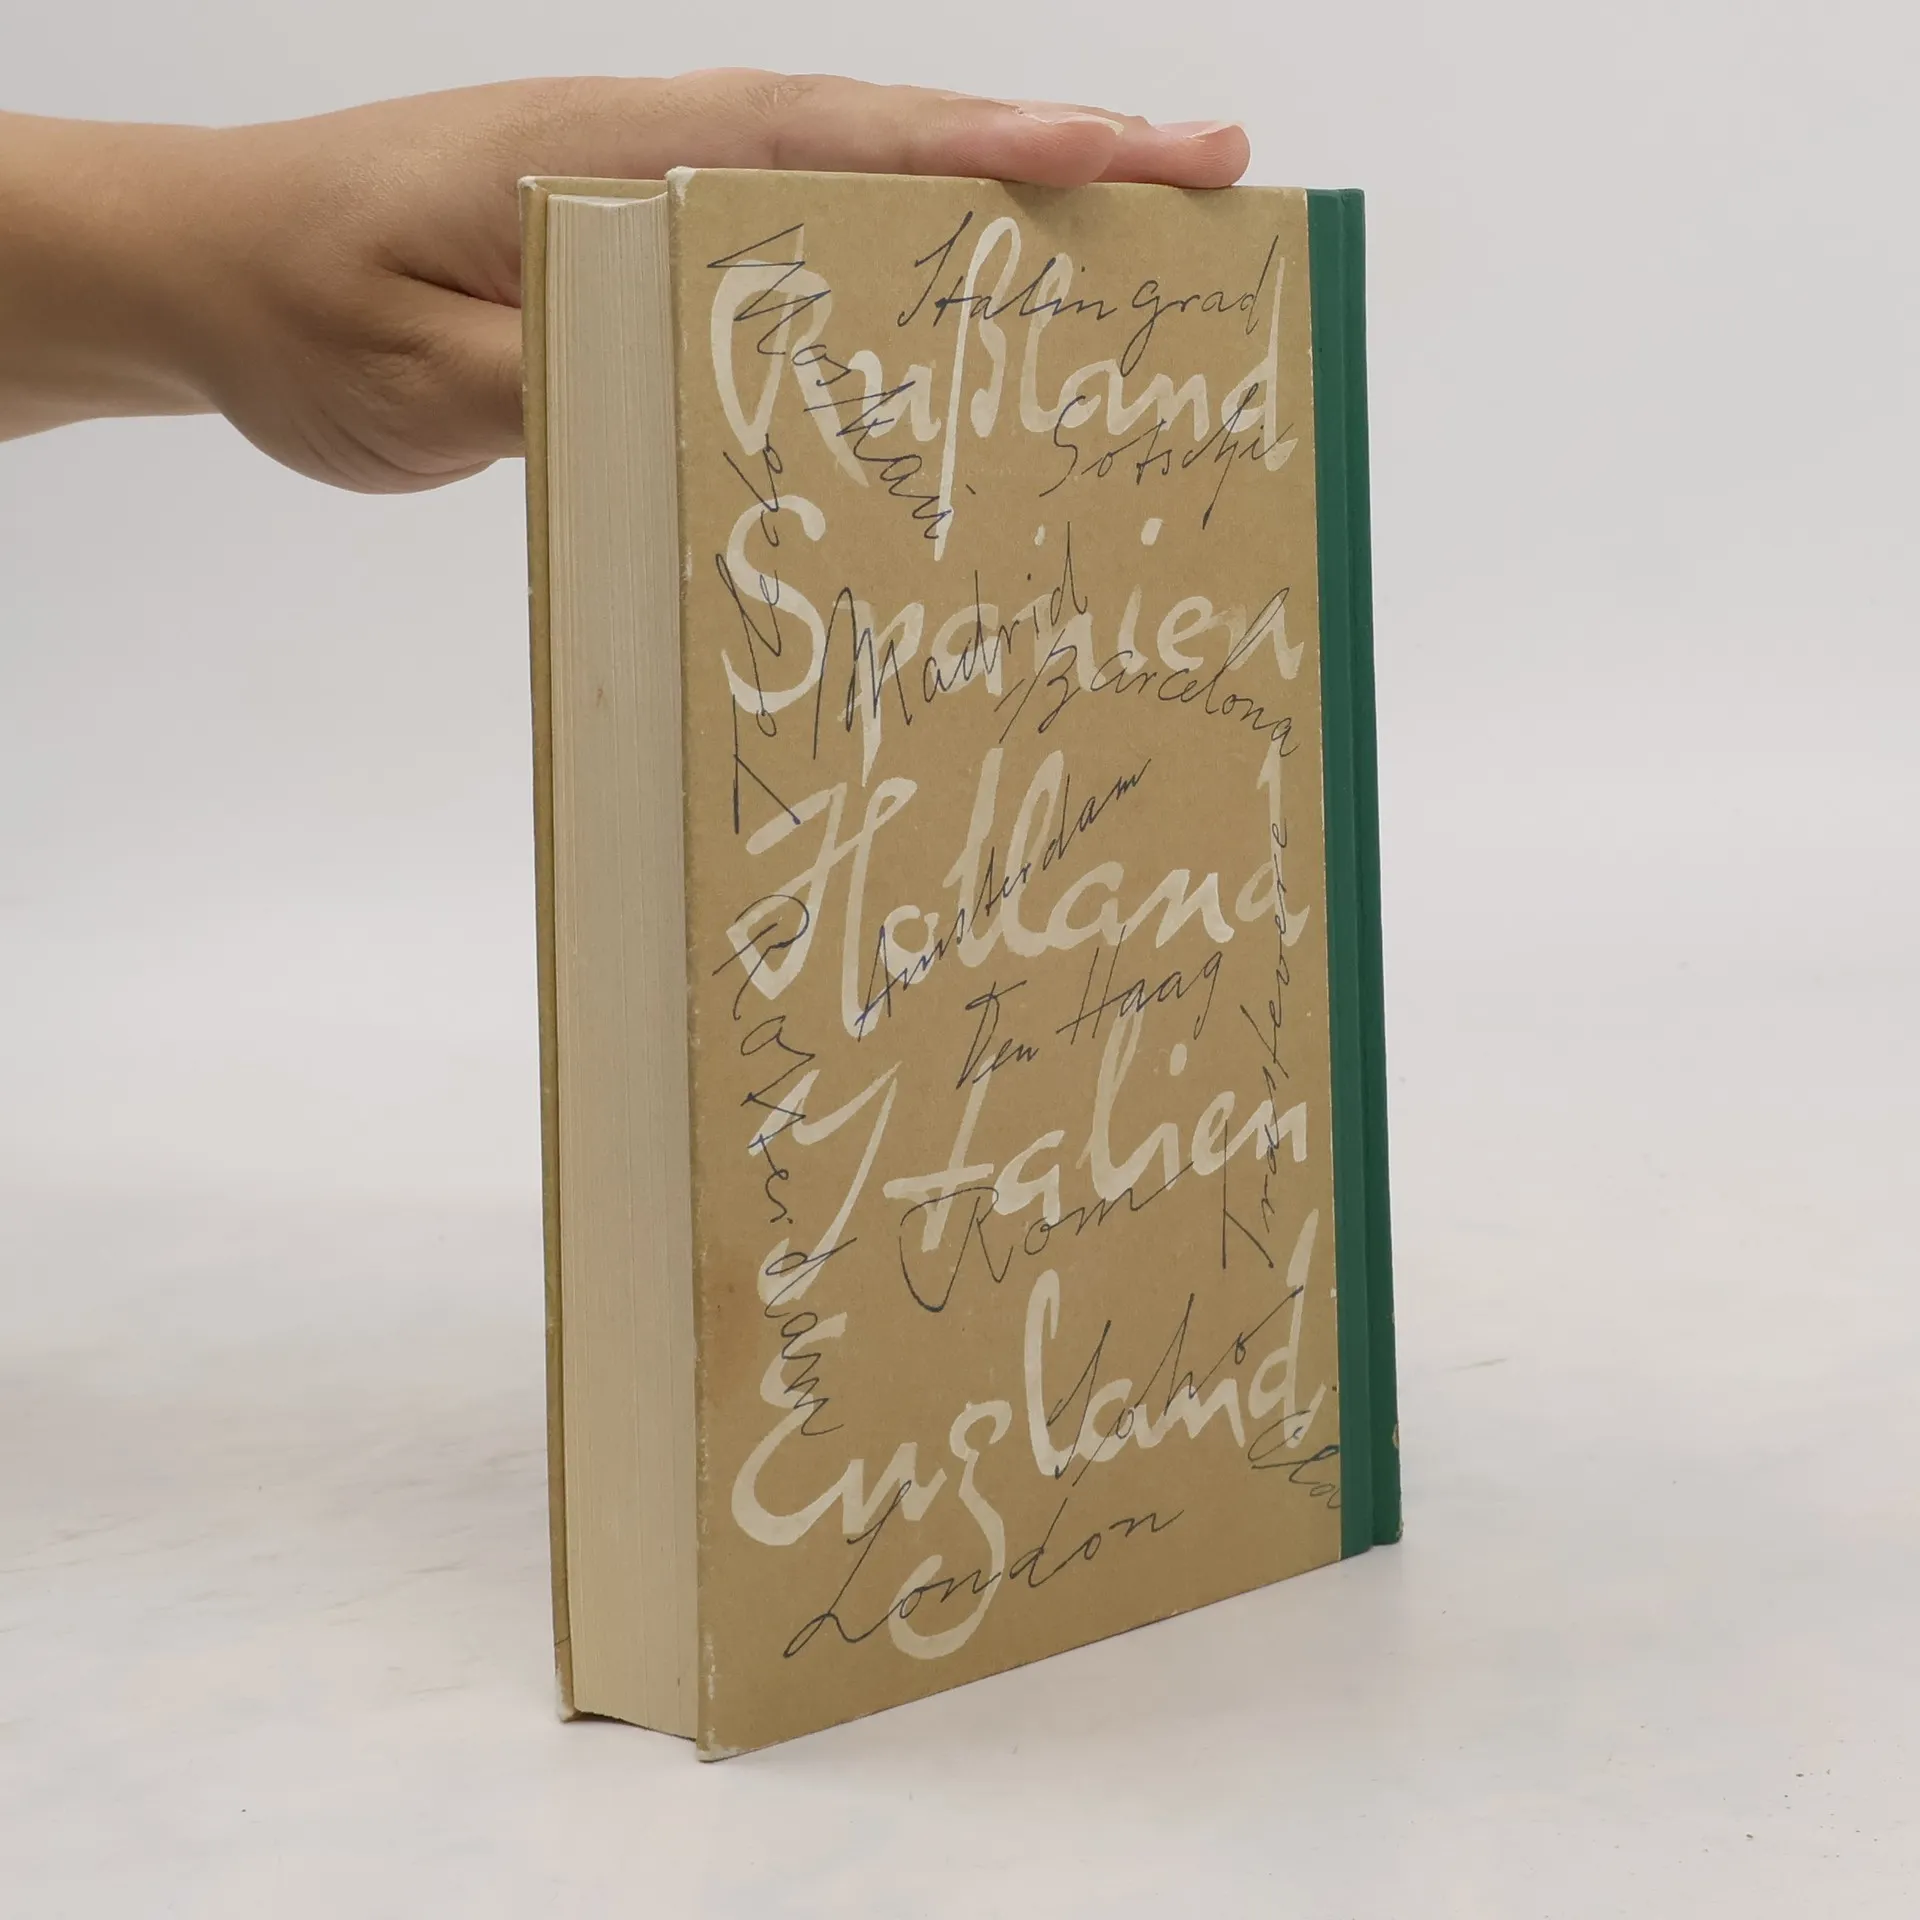 Stalingrad
Rußland
Moskau
Sotschi
Toledo
Spanien
Madrid
Barcelona
Holland
Amsterdam
Den Haag
Trastevere
Rotterdam
Italien
Rom
Soho
England
London